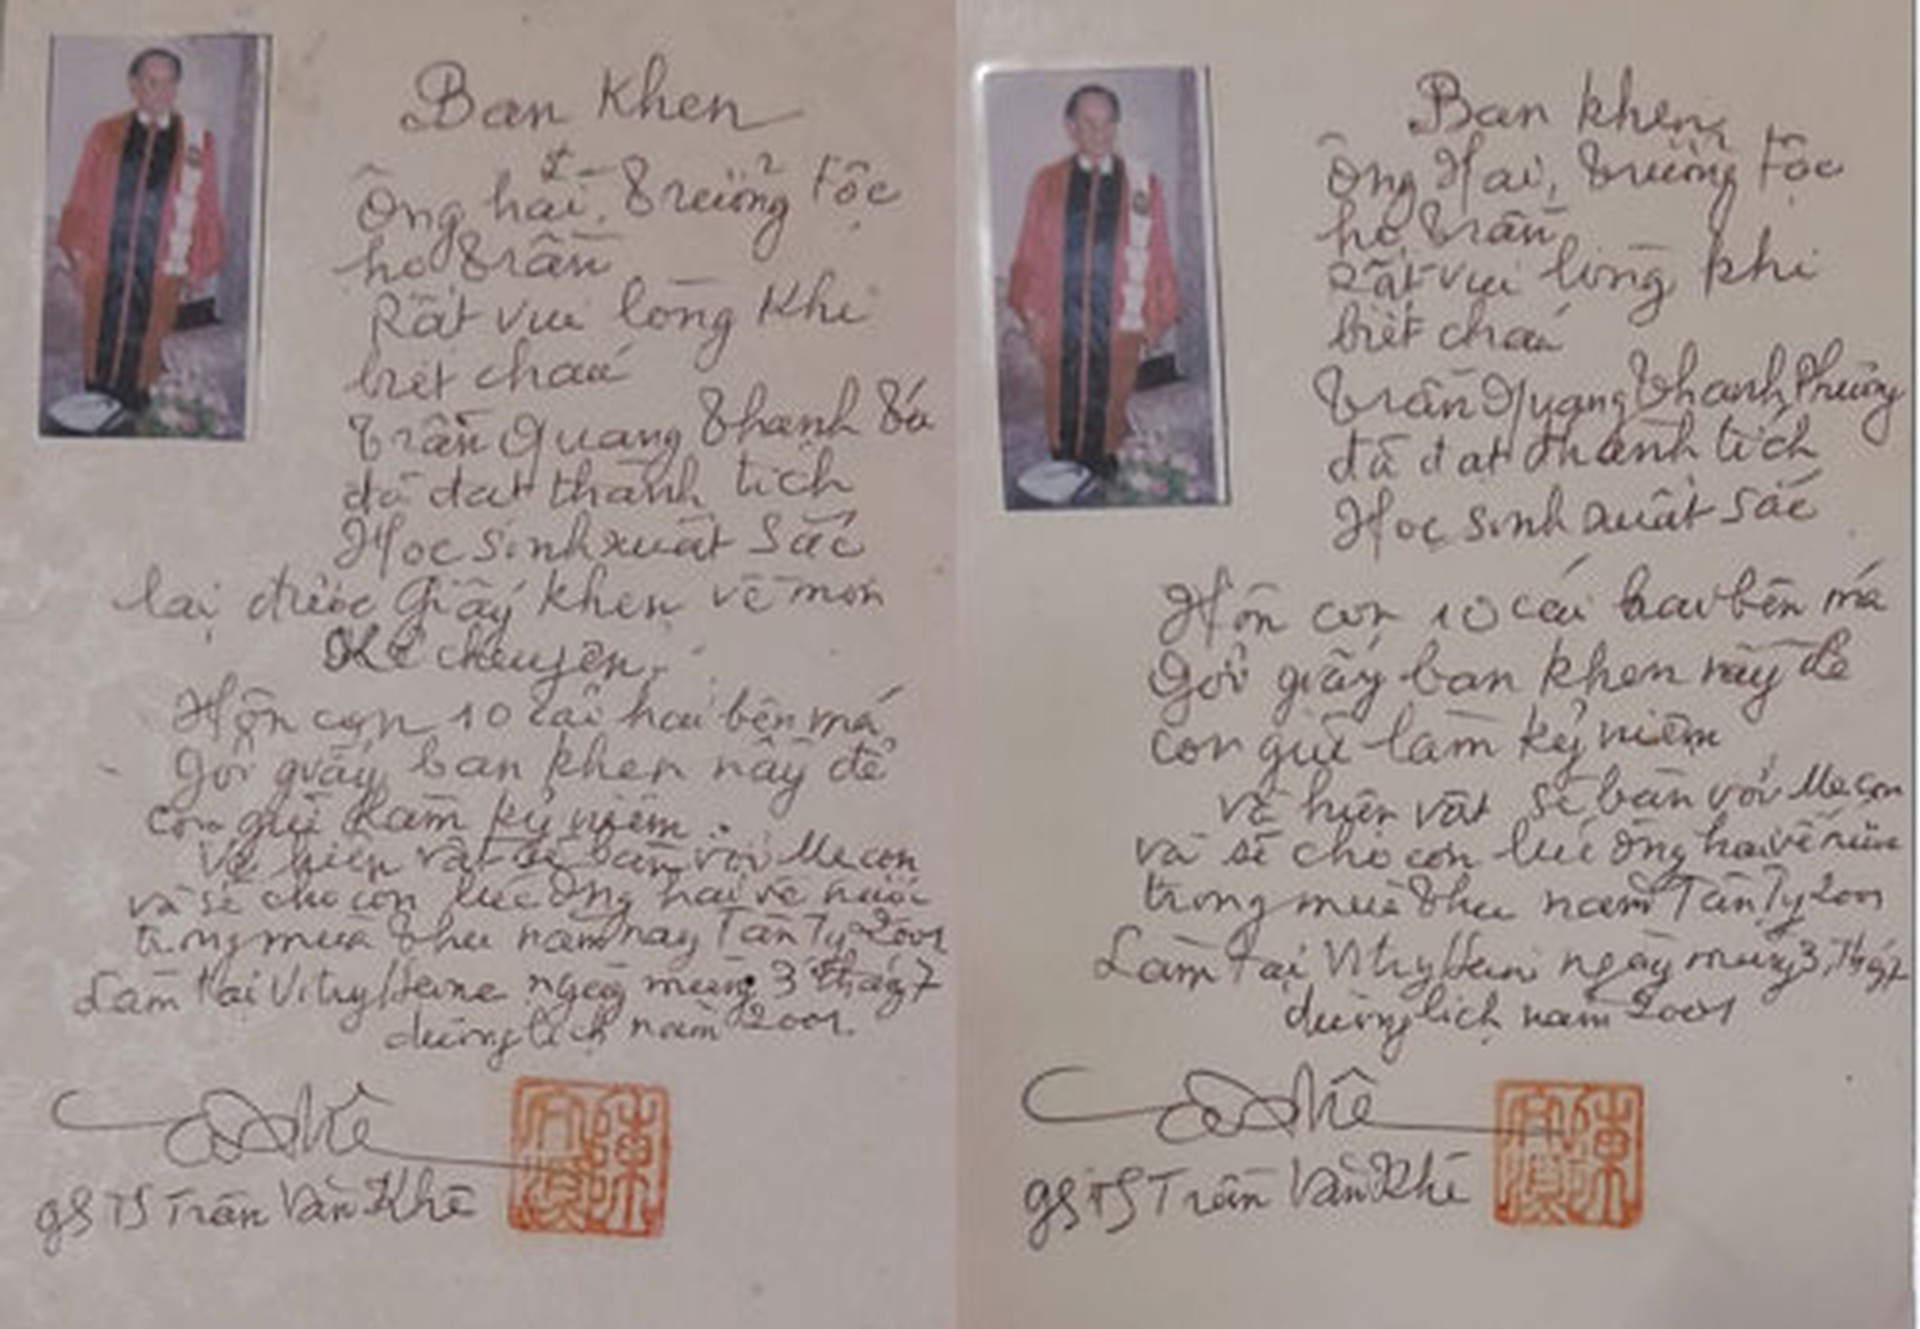 Ban Khen
Ông hai, Trưởng Tộc
họ Trần
Rất vui lòng khi
biết cháu
Trần Quang Thanh Tú
đã đạt thành tích
Học sinh xuất sắc
lại được Giấy khen về môn
Kể chuyện.
Hôn con 10 cái hai bên má
Gởi giấy ban khen nầy để
con giữ làm kỷ niệm.
Về hiện vật sẽ bàn với Mẹ con
và sẽ cho con lúc Ông hai về nước
trong mùa thu năm nay Tân Tỵ 2001
Làm tại Vitry/Seine ngày mùng 3 tháng 7
dương lịch năm 2001.
GS TS Trần Văn Khê
Ban khen
Ông Hai, Trưởng Tộc
họ Trần
Rất vui lòng khi
biết cháu
Trần Quang Thanh Phương
đã đạt thành tích
Học sinh xuất sắc
Hôn con 10 cái hai bên má
Gởi giấy ban khen nầy để
con giữ làm kỷ niệm
về hiện vật sẽ bàn với Mẹ con
và sẽ cho con lúc Ông hai về nước
trong mùa thu năm Tân Tỵ 2001
Làm tại Vitry/Seine ngày mùng 3, tháng 7
dương lịch năm 2001
GS TS Trần Văn Khê